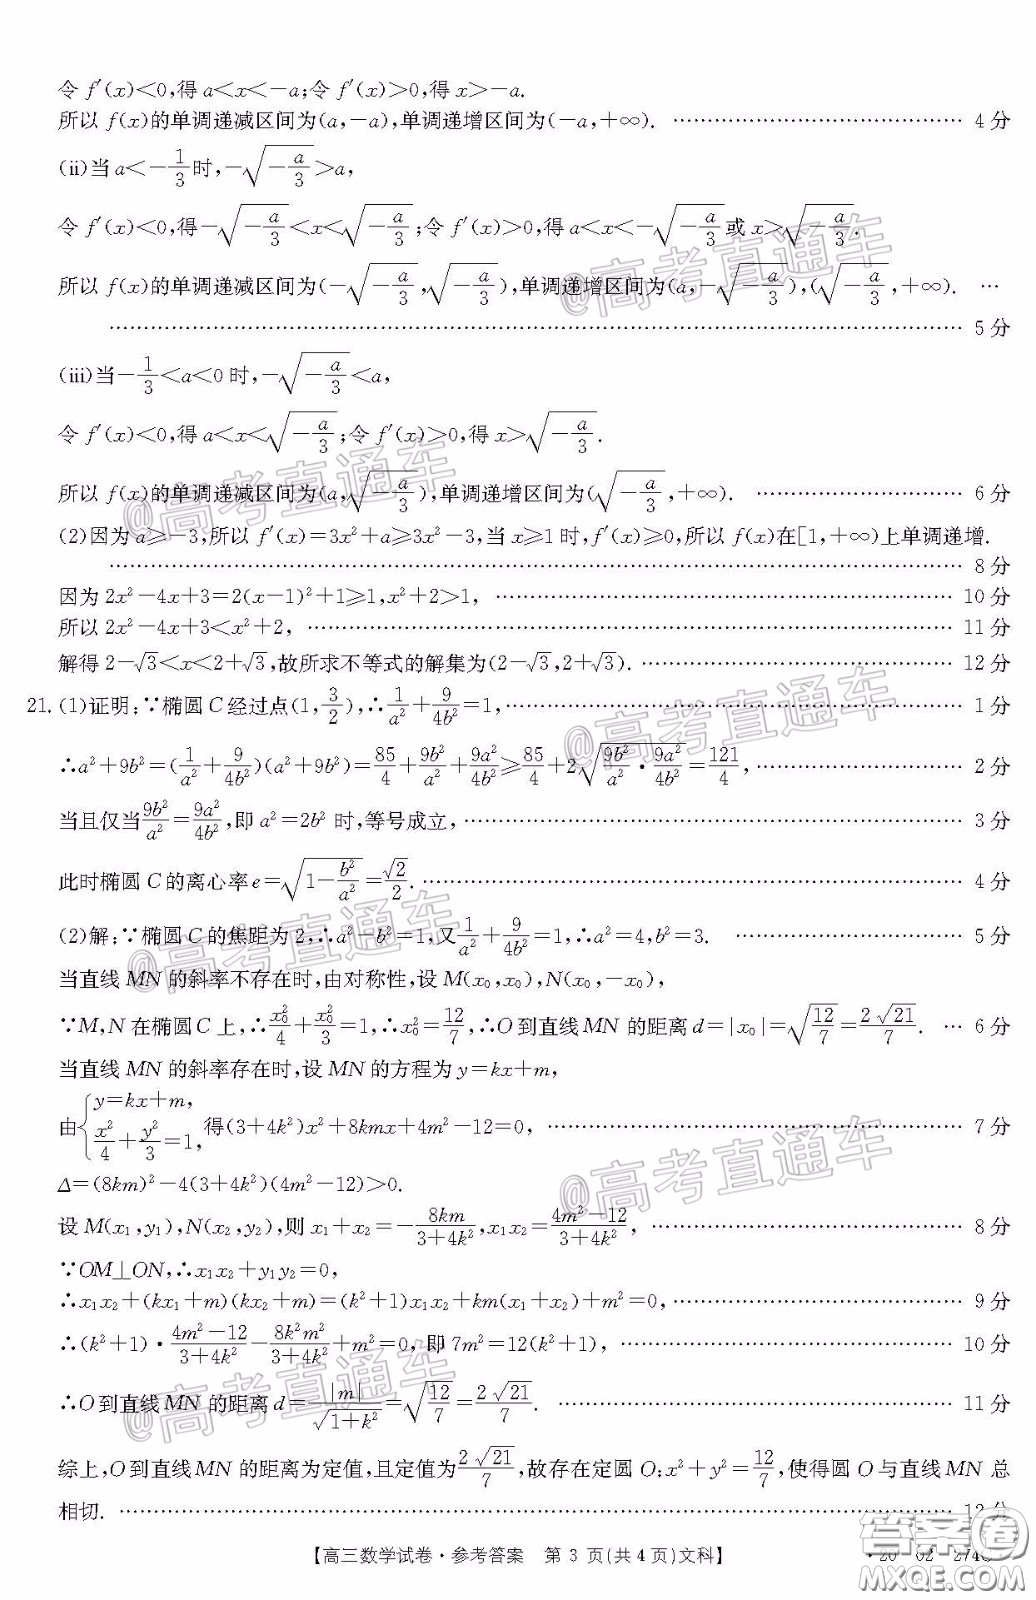 令 f′(x)<0,得 a<x<-a;令 f′(x)>0,得 x>-a.
所以 f(x)的单调递减区间为(a,-a),单调递增区间为(-a,+∞). …… 4 分
(ii)当 a<-1/3 时,-√(-a/3)>a,
令 f′(x)<0,得-√(-a/3)<x<√(-a/3);令 f′(x)>0,得 a<x<-√(-a/3)或 x>√(-a/3).
所以 f(x)的单调递减区间为(-√(-a/3),√(-a/3)),单调递增区间为(a,-√(-a/3)),(√(-a/3),+∞). …
…… 5 分
(iii)当-1/3<a<0 时,-√(-a/3)<a,
令 f′(x)<0,得 a<x<√(-a/3);令 f′(x)>0,得 x>√(-a/3).
所以 f(x)的单调递减区间为(a,√(-a/3)),单调递增区间为(√(-a/3),+∞). …… 6 分
(2)因为 a≥-3,所以 f′(x)=3x²+a≥3x²-3,当 x≥1 时,f′(x)≥0,所以 f(x)在[1,+∞)上单调递增.
…… 8 分
因为 2x²-4x+3=2(x-1)²+1≥1,x²+2>1, …… 10 分
所以 2x²-4x+3<x²+2, …… 11 分
解得 2-√3<x<2+√3,故所求不等式的解集为(2-√3,2+√3). …… 12 分
21. (1)证明:∵椭圆 C 经过点(1,3/2),∴1/a²+9/4b²=1, …… 1 分
∴a²+9b²=(1/a²+9/4b²)(a²+9b²)=85/4+9b²/a²+9a²/4b²≥85/4+2√(9b²/a²·9a²/4b²)=121/4, …… 2 分
当且仅当9b²/a²=9a²/4b²,即 a²=2b² 时,等号成立, …… 3 分
此时椭圆 C 的离心率 e=√(1-b²/a²)=√2/2. …… 4 分
(2)解:∵椭圆 C 的焦距为 2,∴a²-b²=1,又1/a²+9/4b²=1,∴a²=4,b²=3. …… 5 分
当直线 MN 的斜率不存在时,由对称性,设 M(x₀,x₀),N(x₀,-x₀),
∵M,N 在椭圆 C 上,∴x₀²/4+x₀²/3=1,∴x₀²=12/7,∴O 到直线 MN 的距离 d=|x₀|=√(12/7)=2√21/7. … 6 分
当直线 MN 的斜率存在时,设 MN 的方程为 y=kx+m,
由{y=kx+m, x²/4+y²/3=1,得(3+4k²)x²+8kmx+4m²-12=0, …… 7 分
Δ=(8km)²-4(3+4k²)(4m²-12)>0.
设 M(x₁,y₁),N(x₂,y₂),则 x₁+x₂=-8km/(3+4k²),x₁x₂=(4m²-12)/(3+4k²), …… 8 分
∵OM⊥ON,∴x₁x₂+y₁y₂=0,
∴x₁x₂+(kx₁+m)(kx₂+m)=(k²+1)x₁x₂+km(x₁+x₂)+m²=0, …… 9 分
∴(k²+1)·(4m²-12)/(3+4k²)-8k²m²/(3+4k²)+m²=0,即 7m²=12(k²+1), …… 10 分
∴O 到直线 MN 的距离 d=|m|/√(1+k²)=√(12/7)=2√21/7. …… 11 分
综上,O 到直线 MN 的距离为定值,且定值为2√21/7,故存在定圆 O:x²+y²=12/7,使得圆 O 与直线 MN 总
相切. …… 12 分
【高三数学试卷·参考答案 第 3 页(共 4 页)文科】
@高考直通车
@高考直通车
@高考直通车
@高考直通车
@高考直通车
@高考直通车
答案圈
MXQE.COM